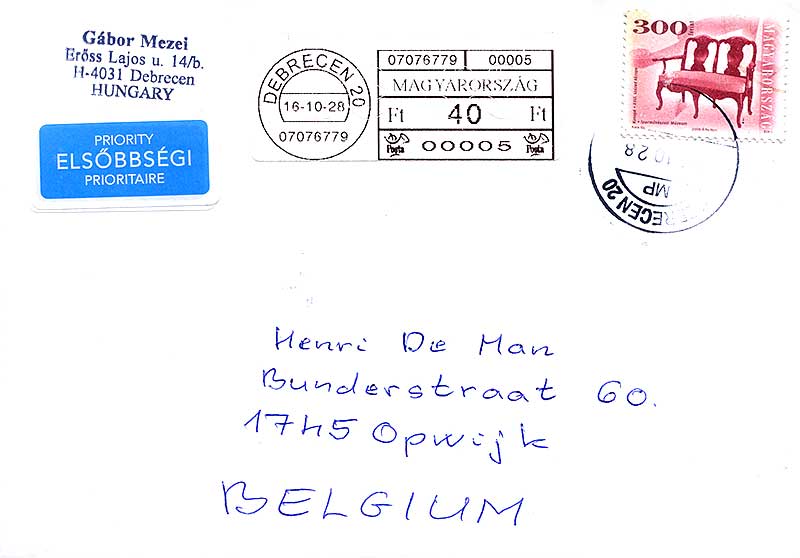 Gábor Mezei
Erőss Lajos u. 14/b.
H-4031 Debrecen
HUNGARY
PRIORITY
ELSŐBBSÉGI
PRIORITAIRE
DEBRECEN 20
16-10-28
07076779
07076779 00005
MAGYARORSZÁG
Ft 40 Ft
Posta 00005 Posta
300
forint
MAGYARORSZÁG
Iparművészeti Múzeum
10 28
MP
BRECEN 20
Henri De Man
Bunderstraat 60.
1745 Opwijk
BELGIUM